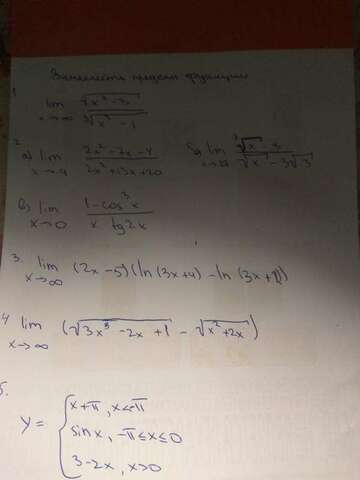 Вычислить пределы функции
1. lim x→∞ √(7x³-3) / ∛(x³-1)
2. а) lim x→-4 (2x²-7x-4) / (2x²+13x+20) б) lim x→27 (∛x - 3) / (√x - 3√3)
в) lim x→0 (1-cos³x) / (x tg2x)
3. lim x→∞ (2x-5)(ln(3x+4) - ln(3x+1))
4 lim x→∞ (√(3x³-2x+1) - √(x²+2x))
5.
y = { x+π, x<-π
sinx, -π≤x≤0
3-2x, x>0